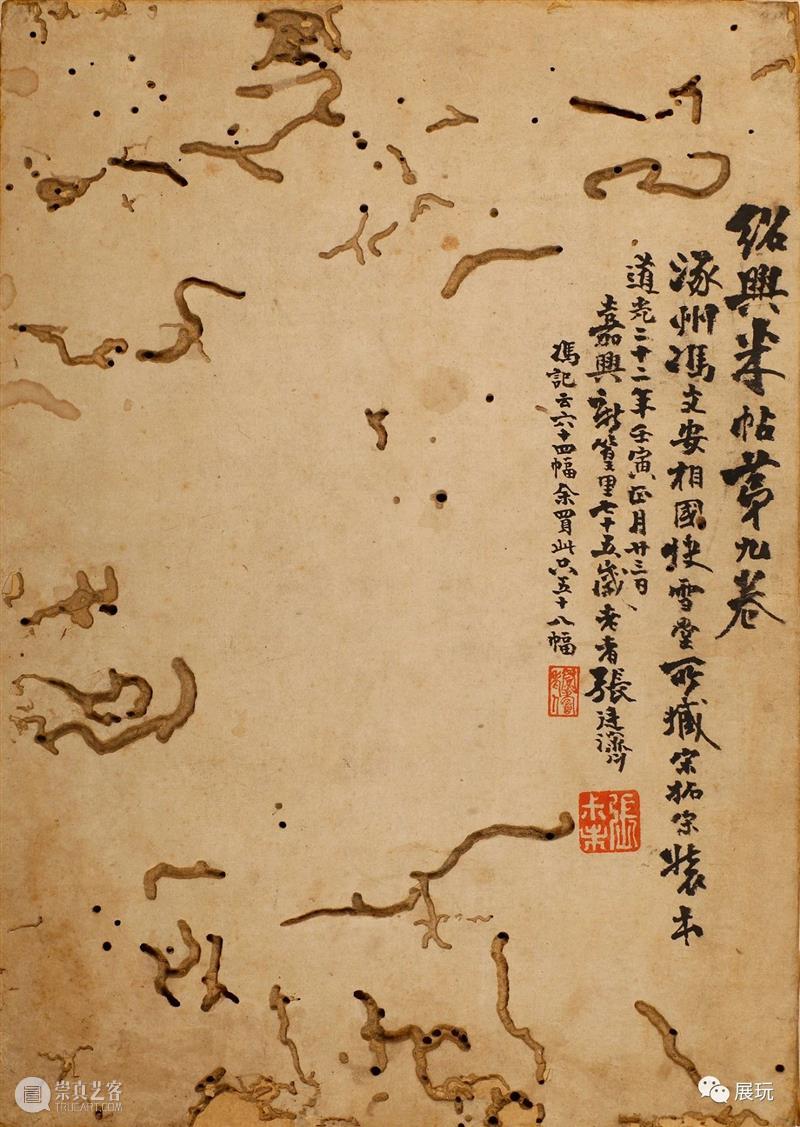 紹興米帖第九卷
涿州馮文安相國快雪堂所臧宋拓宋裝本
道光二十二年壬寅正月廿三日
嘉興新篁里七十五歲老者張廷濟
馮記云六十四幅余買此只五十八幅
張尗未
崇真艺客
TRUEART.COM
展玩